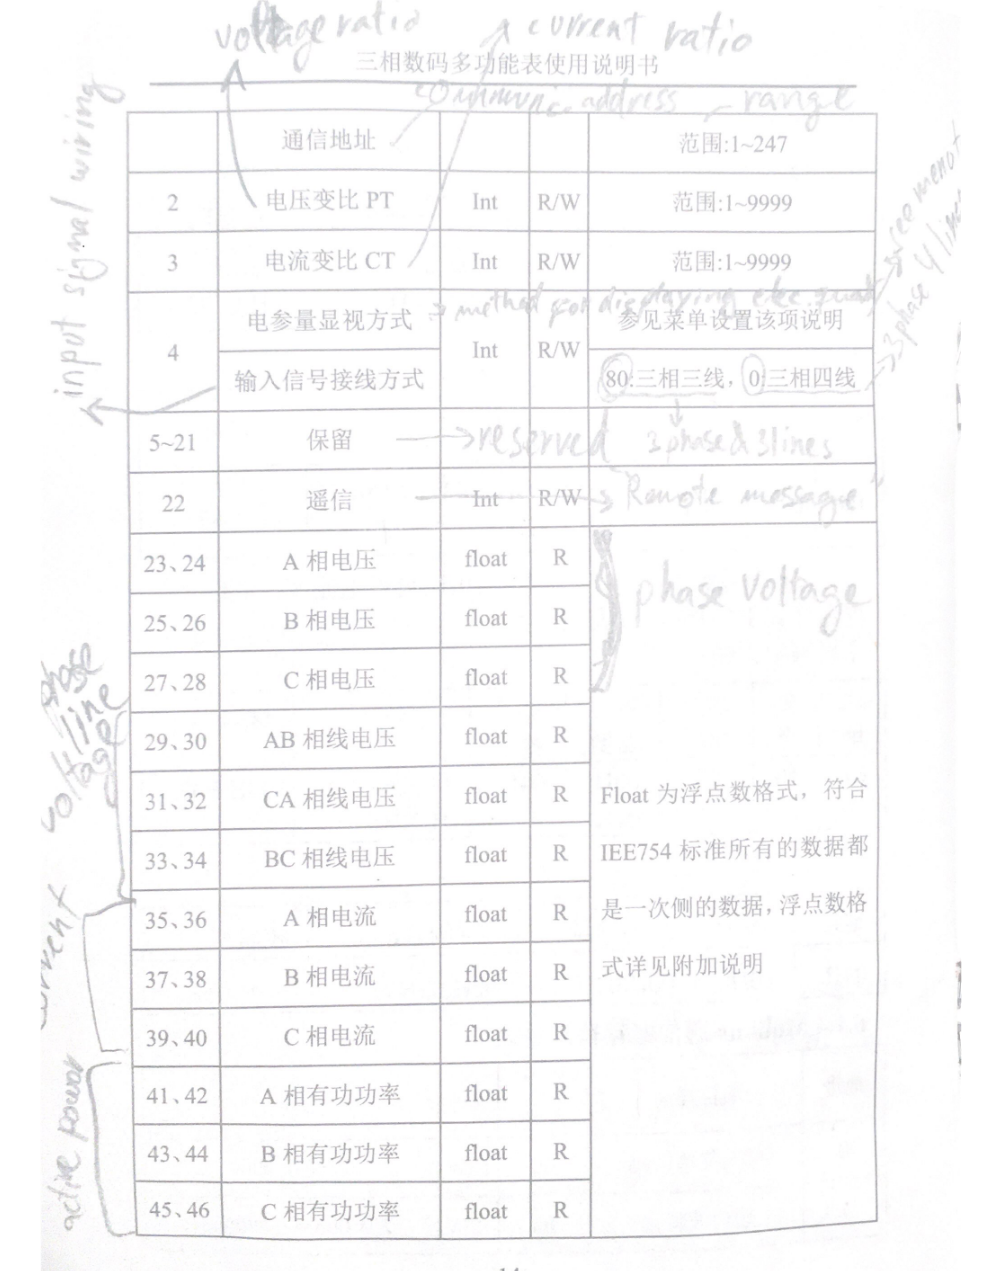 voltage ratio
current ratio
三相数码多功能表使用说明书
communic. address range
通信地址 范围:1~247
2 电压变比 PT Int R/W 范围:1~9999
3 电流变比 CT Int R/W 范围:1~9999
input signal wiring
4 电参量显视方式 Int R/W 参见菜单设置该项说明
method for displaying elec.
3 phase 4
输入信号接线方式 80:三相三线，0:三相四线
5~21 保留 reserved 3 phase & 3 lines
22 遥信 Int R/W Remote message
23、24 A 相电压 float R
phase voltage
25、26 B 相电压 float R
27、28 C 相电压 float R
phase
line
voltage
29、30 AB 相线电压 float R
31、32 CA 相线电压 float R
33、34 BC 相线电压 float R
Float 为浮点数格式，符合
IEE754 标准所有的数据都
是一次侧的数据，浮点数格
式详见附加说明
35、36 A 相电流 float R
37、38 B 相电流 float R
39、40 C 相电流 float R
active power
41、42 A 相有功功率 float R
43、44 B 相有功功率 float R
45、46 C 相有功功率 float R